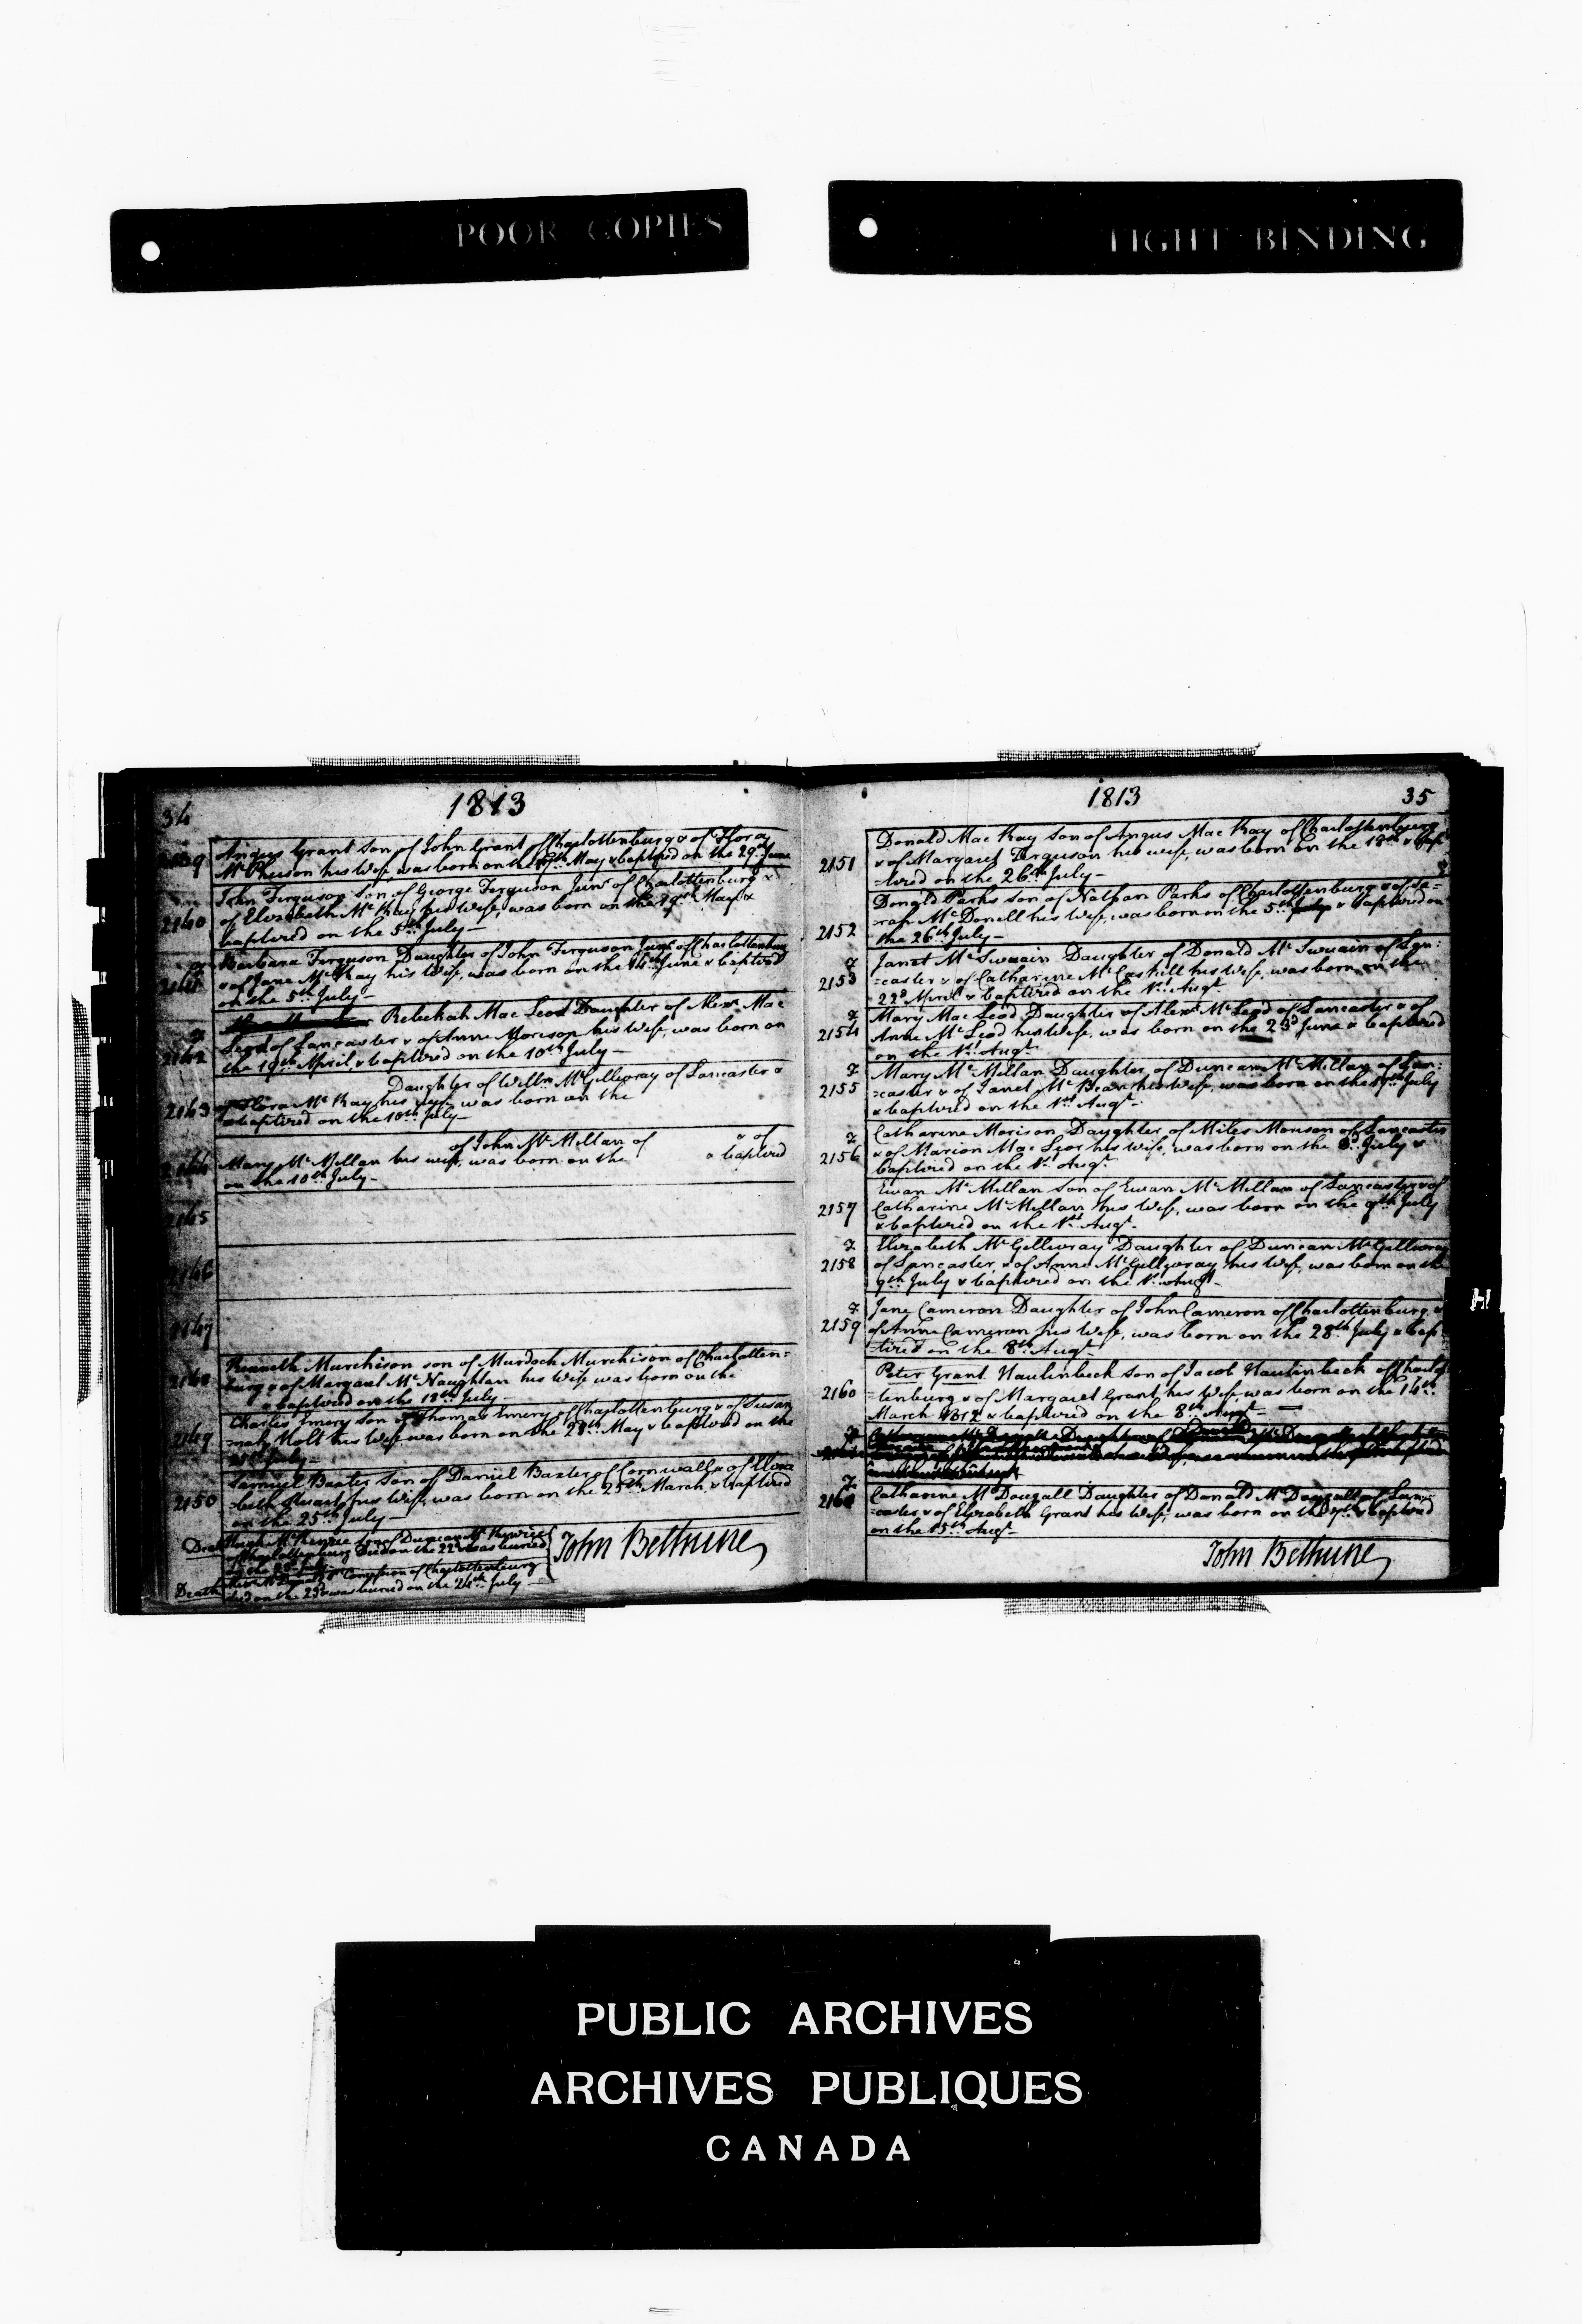 POOR COPIES
TIGHT BINDING
34
1813
2139 Angus Grant son of John Grant of Charlottenburg & of Flora
Mc Pherson his Wife, was born on the May & baptized on the 29th June
2140 John Ferguson son of George Ferguson Junr of Charlottenburg &
of Elizabeth Mc Kay his Wife, was born on the 29th May &
baptized on the 5th July —
2141 Barbara Ferguson Daughter of John Ferguson Junr of Charlottenburg
& of Jane Mc Kay his Wife, was born on the 14th June & baptized
on the 5th July —
2142 Rebekah Mac Leod Daughter of Alexr Mac
Leod of Lancaster & of Anne Morison his Wife, was born on
the 19th April & baptized on the 10th July —
Daughter of Willm McGillivray of Lancaster &
2143 of Flora Mc Kay his wife was born on the
& baptized on the 10th July —
of John Mc Millan of & of
2144 Mary Mc Millan his wife, was born on the & baptized
on the 10th July —
2145
2146
2147
Kenneth Murchison son of Murdoch Murchison of Charlotten=
2148 burg & of Margaret Mc Naughtan his Wife was born on the
& baptized on the 18th July —
Charles Emery son of Thomas Emery of Charlottenburg & of Susan
2149 Holt his Wife was born on the 28th May & baptized on the
July —
Samuel Baxter Son of Daniel Baxter of Cornwall & of Eliza
2150 =beth Stuart his Wife, was born on the 25th March & baptized
on the 25th July —
Death Hugh Mc Kenzie son of Duncan Mc Kenzie
of Charlottenburg Died on the 22d & was buried
on the July
Death of Charlottenburg
died on the 23d & was buried on the 24th July —
John Bethune
1813
35
Donald Mac Kay son of Angus Mac Kay of Charlottenburg
2151 & of Margaret Ferguson his wife, was born on the 18th & bap
=tized on the 26th July —
Donald Parks son of Nathan Parks of Charlottenburg & of Sa=
2152 rah Mc Donell his Wife, was born on the 5th & baptized on
the 26th July —
7 Janet Mc Swain Daughter of Donald Mc Swain of Lan:
2153 =caster & of Catharine Mc Caskill his Wife, was born on the
22d April & baptized on the 1st Augt
7 Mary Mac Leod Daughter of Alexr Mc Leod of Lancaster & of
2154 Anne Mc Leod his Wife, was born on the 23d June & baptized
on the 1st Augt
7 Mary Mc Millan Daughter of Duncan Mc Millan of Lan:
2155 =caster & of Janet Mc Bean his Wife, was born on the July
& baptized on the 1st Augt —
7 Catharine Morison Daughter of Miles Morison of Lancaster
2156 & of Marion Mac Leod his Wife, was born on the July &
baptized on the 1st Augt
Ewan Mc Millan son of Ewan Mc Millan of Lancaster & of
2157 Catharine Mc Millan his Wife, was born on the 9th July
& baptized on the 1st Augt —
7 Elizabeth McGillivray Daughter of Duncan McGillivray
2158 of Lancaster, & of Anne McGillivray his Wife, was born on the
9th July & baptized on the 1st Augt —
7 Jane Cameron Daughter of John Cameron of Charlottenburg &
2159 of Anne Cameron his Wife, was born on the 28th July & bap
=tized on the 8th Augt —
Peter Grant Haulinbeck son of Jacob Haulinbeck of Charlot
2160 =tenburg & of Margaret Grant his Wife was born on the 14th
March 1812 & baptized on the 8th Augt —
7 Catharine Mc Dougall Daughter of Donald Mc Dougall of Lan=
=caster & of Elizabeth Grant his Wife, was born on the & baptized
on the 15th Augt —
John Bethune
H
PUBLIC ARCHIVES
ARCHIVES PUBLIQUES
CANADA